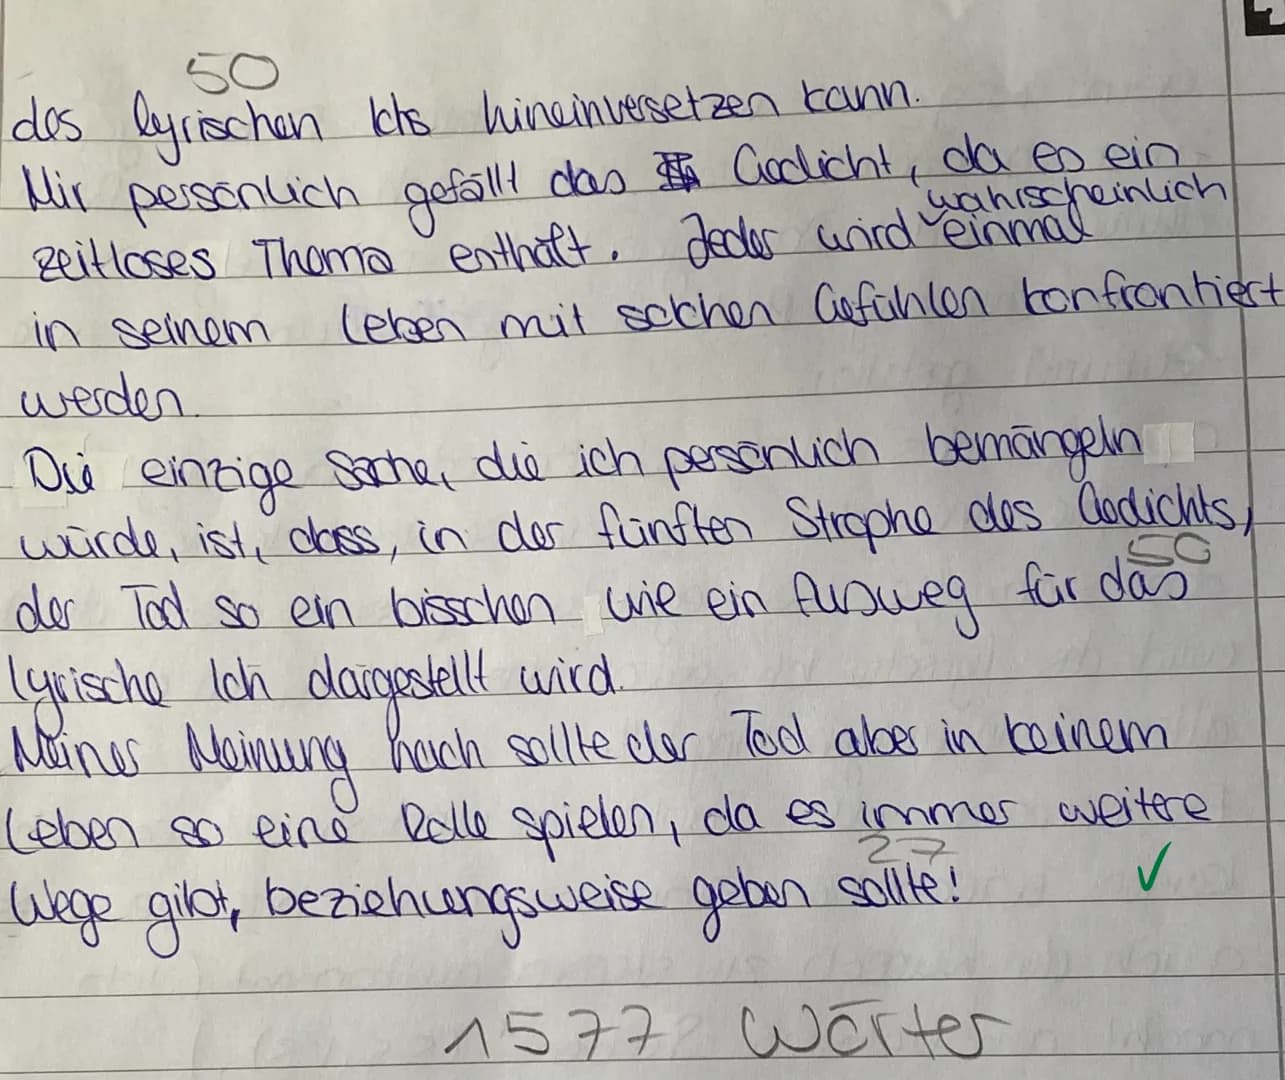 50
des lyrischen Ichs hineinversetzen kann.
Mir persönlich gefällt das Gedicht, da es ein
wahrscheinlich
zeitloses Thema enthält. Jeder wird einmal
in seinem Leben mit solchen Gefühlen konfrontiert
werden.
Die einzige Sache, die ich persönlich bemängeln
würde, ist, dass, in der fünften Strophe des Gedichts,
50
der Tod so ein bisschen wie ein Ausweg für das
lyrische Ich dargestellt wird.
Meiner Meinung nach sollte der Tod aber in keinem
Leben so eine Rolle spielen, da es immer weitere
27 ✓
Wege gibt, beziehungsweise geben sollte!
1577 Wörter